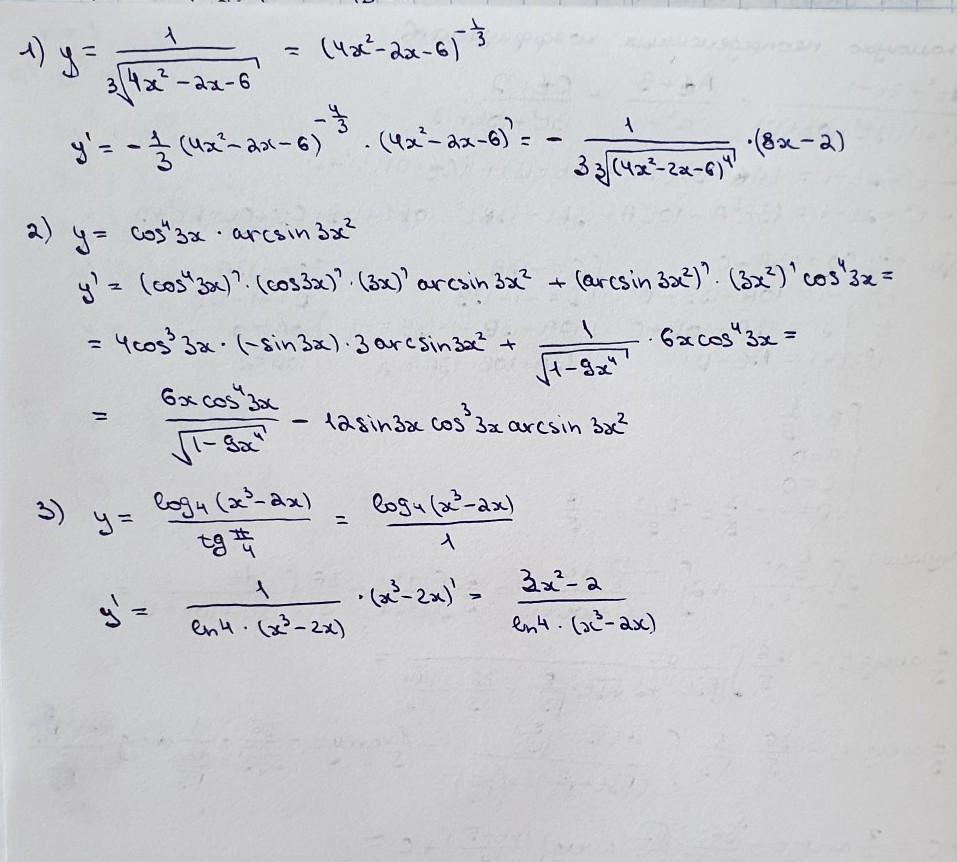 1) y = 1/∛(4x² - 2x - 6) = (4x² - 2x - 6)^(-1/3)
y' = - 1/3 (4x² - 2x - 6)^(-4/3) · (4x² - 2x - 6)' = - 1/(3∛((4x² - 2x - 6)⁴)) · (8x - 2)
2) y = cos⁴3x · arcsin 3x²
y' = (cos⁴3x)' · (cos3x)' · (3x)' arcsin 3x² + (arcsin 3x²)' · (3x²)' cos⁴3x =
= 4cos³3x · (-sin3x) · 3 arcsin3x² + 1/√(1 - 9x⁴) · 6x cos⁴3x =
= 6x cos⁴3x/√(1 - 9x⁴) - 12 sin3x cos³3x arcsin 3x²
3) y = log₄(x³ - 2x)/tg π/4 = log₄(x³ - 2x)/1
y' = 1/(ln4 · (x³ - 2x)) · (x³ - 2x)' = (3x² - 2)/(ln4 · (x³ - 2x))